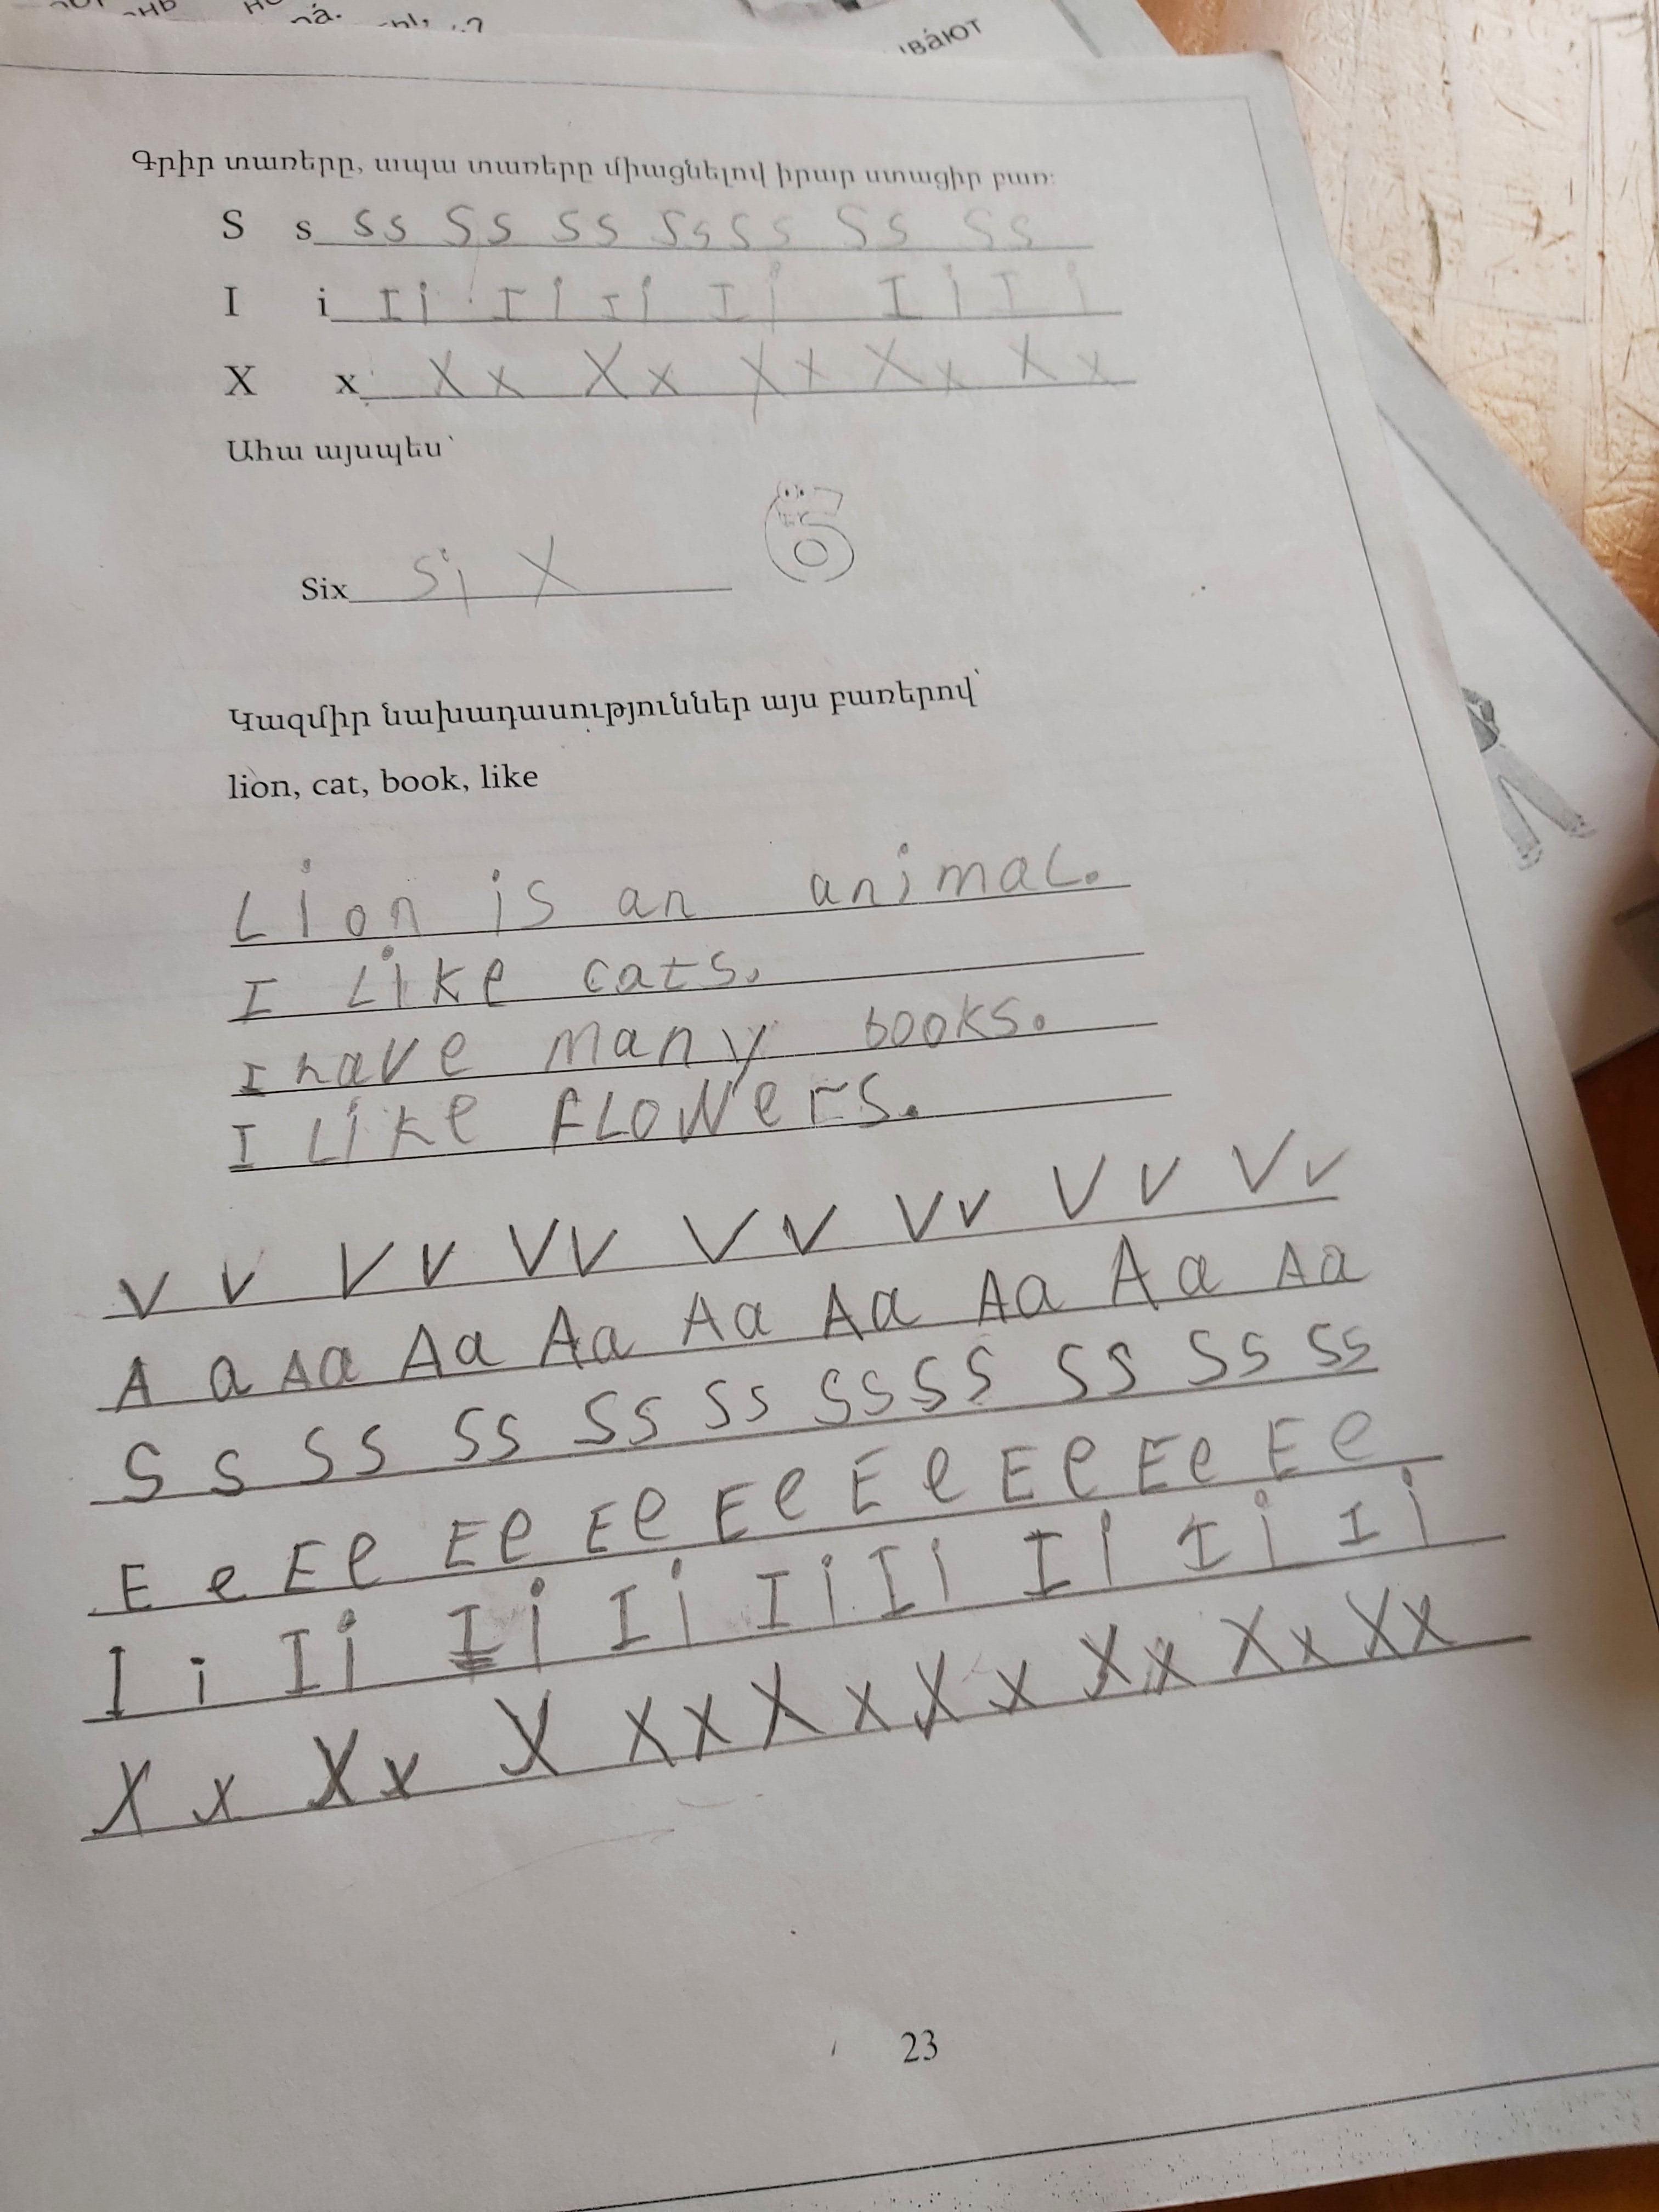 վáют
Գրիր տառերը, ապա տառերը միացնելով իրար ստացիր բառ:
S s Ss Ss Ss Ss Ss Ss Ss
I i Ii Ii Ii Ii Ii Ii
X x Xx Xx Xx Xx Xx
Ահա այսպես՝
Six six
6
Կազմիր նախադասություններ այս բառերով՝
lion, cat, book, like
Lion is an animal.
I like cats.
I have many books.
I like flowers.
V v V v V v V v V v V v V v
A a Aa Aa Aa Aa Aa Aa Aa Aa
S s Ss Ss Ss Ss Ss Ss Ss Ss Ss
E e Ee Ee Ee Ee Ee Ee Ee Ee
I i Ii Ii Ii Ii Ii Ii Ii Ii
X x Xx X Xx Xx Xx Xx Xx Xx
23